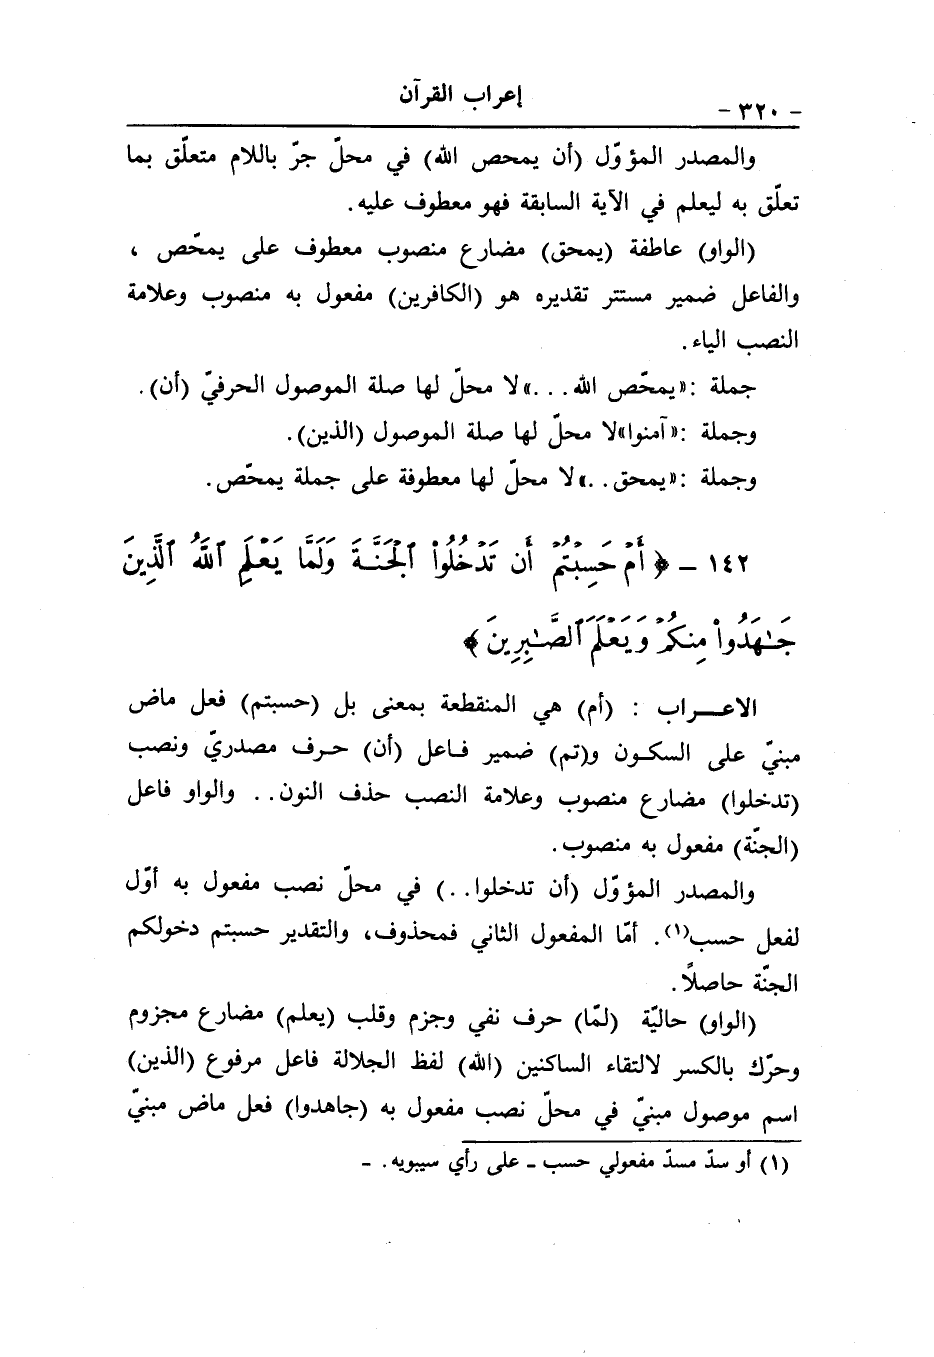 إعراب القرآن
- ٣٢٠ -
والمصدر المؤوّل (أن يمحص الله) في محلّ جرّ باللام متعلّق بما
تعلّق به ليعلم في الآية السابقة فهو معطوف عليه.
(الواو) عاطفة (يمحق) مضارع منصوب معطوف على يمحّص ،
والفاعل ضمير مستتر تقديره هو (الكافرين) مفعول به منصوب وعلامة
النصب الياء.
جملة :«يمحّص الله...»لا محلّ لها صلة الموصول الحرفيّ (أن).
وجملة :«آمنوا»لا محلّ لها صلة الموصول (الذين).
وجملة :«يمحق..»لا محلّ لها معطوفة على جملة يمحّص.
١٤٢ - ﴿ أَمْ حَسِبْتُمْ أَن تَدْخُلُواْ ٱلْجَنَّةَ وَلَمَّا يَعْلَمِ ٱللَّهُ ٱلَّذِينَ
جَـٰهَدُواْ مِنكُمْ وَيَعْلَمَ ٱلصَّـٰبِرِينَ ﴾
الاعـــراب : (أم) هي المنقطعة بمعنى بل (حسبتم) فعل ماض
مبنيّ على السكـون و(تم) ضمير فـاعل (أن) حـرف مصدريّ ونصب
(تدخلوا) مضارع منصوب وعلامة النصب حذف النون.. والواو فاعل
(الجنّة) مفعول به منصوب.
والمصدر المؤوّل (أن تدخلوا..) في محلّ نصب مفعول به أوّل
لفعل حسب(١). أمّا المفعول الثاني فمحذوف، والتقدير حسبتم دخولكم
الجنّة حاصلاً.
(الواو) حاليّة (لمّا) حرف نفي وجزم وقلب (يعلم) مضارع مجزوم
وحرّك بالكسر لالتقاء الساكنين (الله) لفظ الجلالة فاعل مرفوع (الذين)
اسم موصول مبنيّ في محلّ نصب مفعول به (جاهدوا) فعل ماض مبنيّ
(١) أو سدّ مسدّ مفعولي حسب - على رأي سيبويه. -